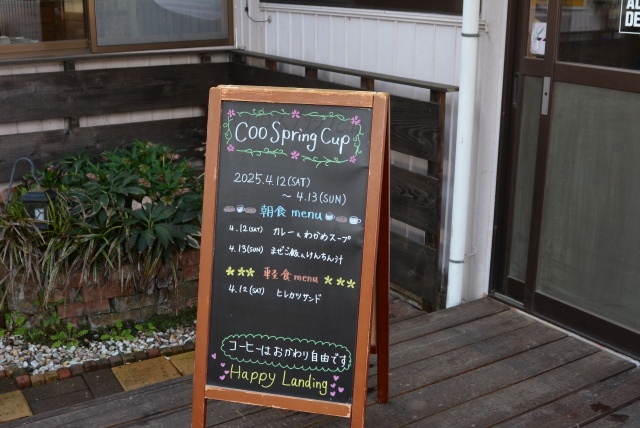 COO Spring Cup
2025.4.12(SAT)
～ 4.13(SUN)
朝食 menu
4.12(SAT) カレー&わかめスープ
4.13(SUN) まぜご飯&けんちん汁
軽食 menu
4.12(SAT) ヒレカツサンド
コーヒーはおかわり自由です
Happy Landing